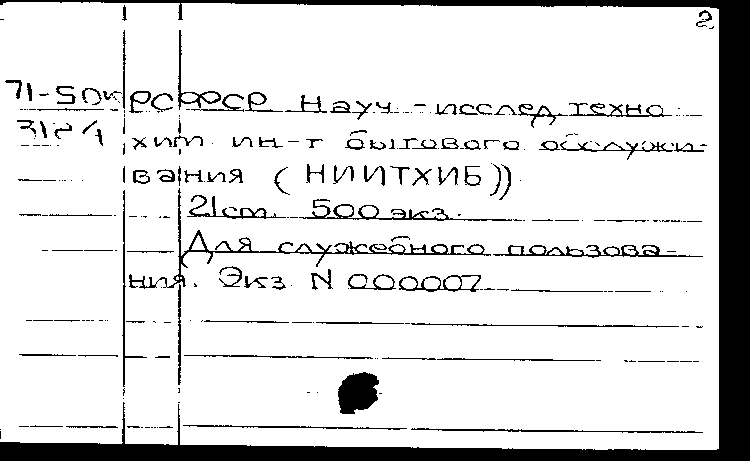 2
71-5ДК РСФСР Науч.-исслед. техно
3124 хим ин-т бытового обслужи-
вания (НИИТХИБ))
21 cm. 500 экз.
Для служебного пользова-
ния. Экз N 000007